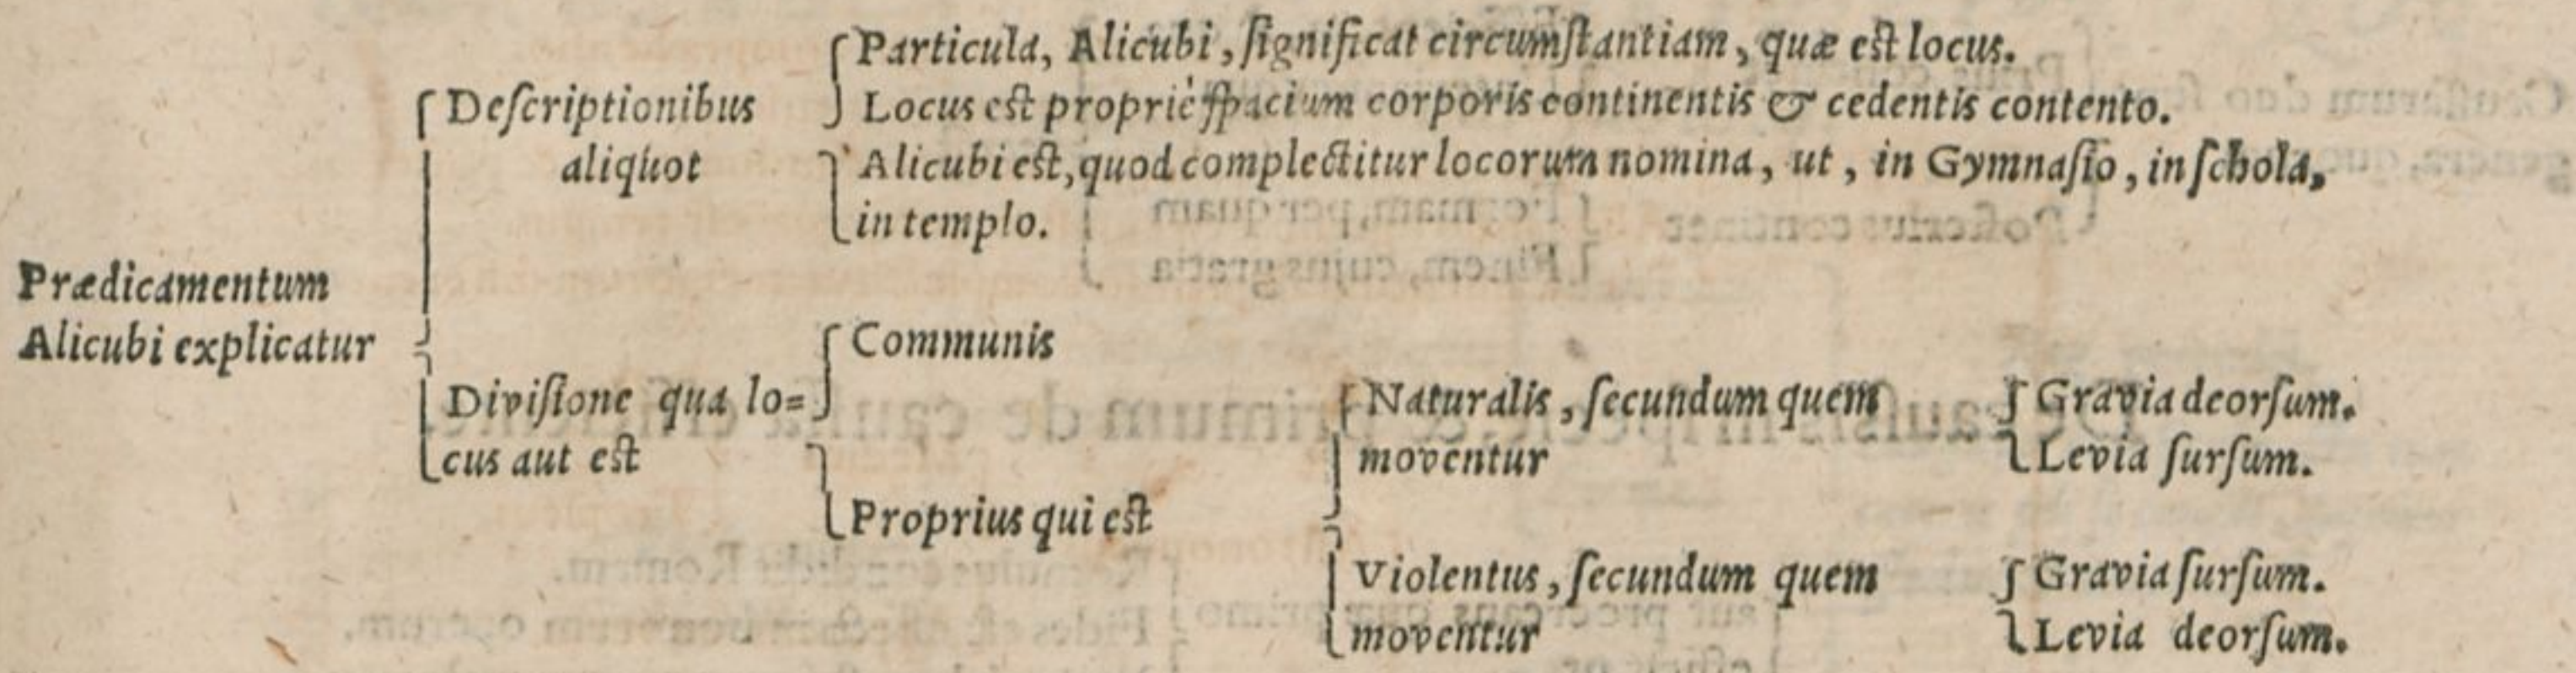 Prædicamentum
Alicubi explicatur
Deſcriptionibus
aliquot
Particula, Alicubi, ſignificat circumſtantiam, quæ eſt locus.
Locus eſt propriè ſpacium corporis continentis & cedentis contento.
Alicubi eſt, quod complectitur locorum nomina, ut, in Gymnaſio, in ſchola,
in templo.
Diviſione qua lo=
cus aut eſt
Communis
Proprius qui eſt
Naturalis, ſecundum quem
moventur
Gravia deorſum.
Levia ſurſum.
Violentus, ſecundum quem
moventur
Gravia ſurſum.
Levia deorſum.